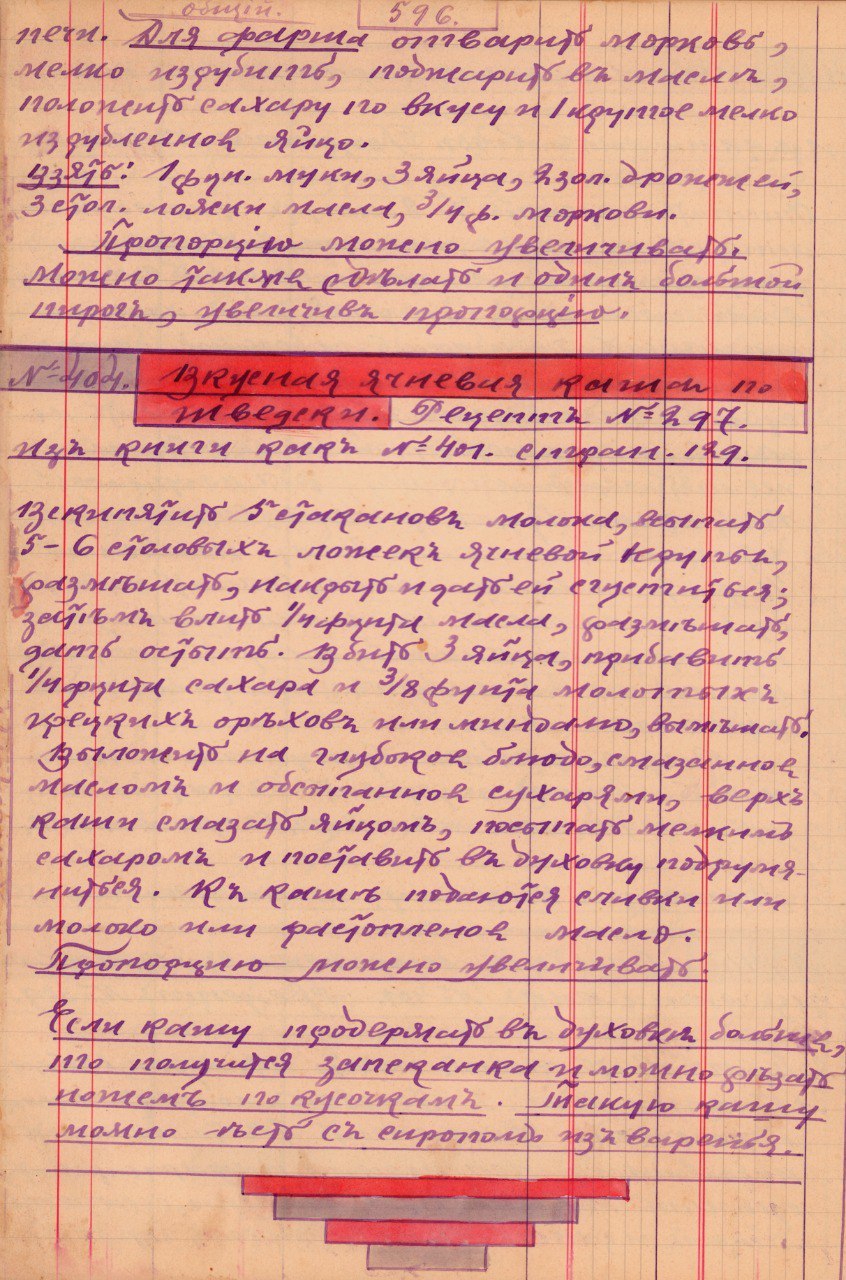 общій.
596.
печи. Для фарша отварить морковь,
мелко изрубить, поджарить въ маслѣ,
положить сахару по вкусу и 1 крутое мелко
изрубленное яйцо.
Взять: 1 фун. муки, 3 яйца, 2 зол. дрожжей,
3 стол. ложки масла, 3/4 ф. моркови.
Пропорцію можно увеличивать.
Можно также сдѣлать и одинъ большой
пирогъ, увеличивъ пропорцію.
№ 404. Вкусная ячневая каша по
шведски. Рецептъ № 297.
изъ книги какъ № 401. стран. 129.
Вскипятить 5 стакановъ молока, всыпать
5-6 столовыхъ ложекъ ячневой крупы,
размѣшать, накрыть и дать ей сгуститься;
затѣмъ влить 1/4 фунта масла, размѣшать,
дать остыть. Взбить 3 яйца, прибавить
1/4 фунта сахара и 3/8 фунта молотыхъ
грецкихъ орѣховъ или миндалю, вымѣшать.
Выложить на глубокое блюдо, смазанное
масломъ и обсыпанное сухарями, верхъ
каши смазать яйцомъ, посыпать мелкимъ
сахаромъ и поставить въ духовку подрумя-
ниться. Къ кашѣ подаются сливки или
молоко или растопленое масло.
Пропорцию можно увеличивать.
Если кашу продержать въ духовкѣ больше,
то получится запеканка и можно рѣзать
ножемъ по кусочкамъ. Такую кашу
можно ѣсть съ сиропомъ изъ варенья.